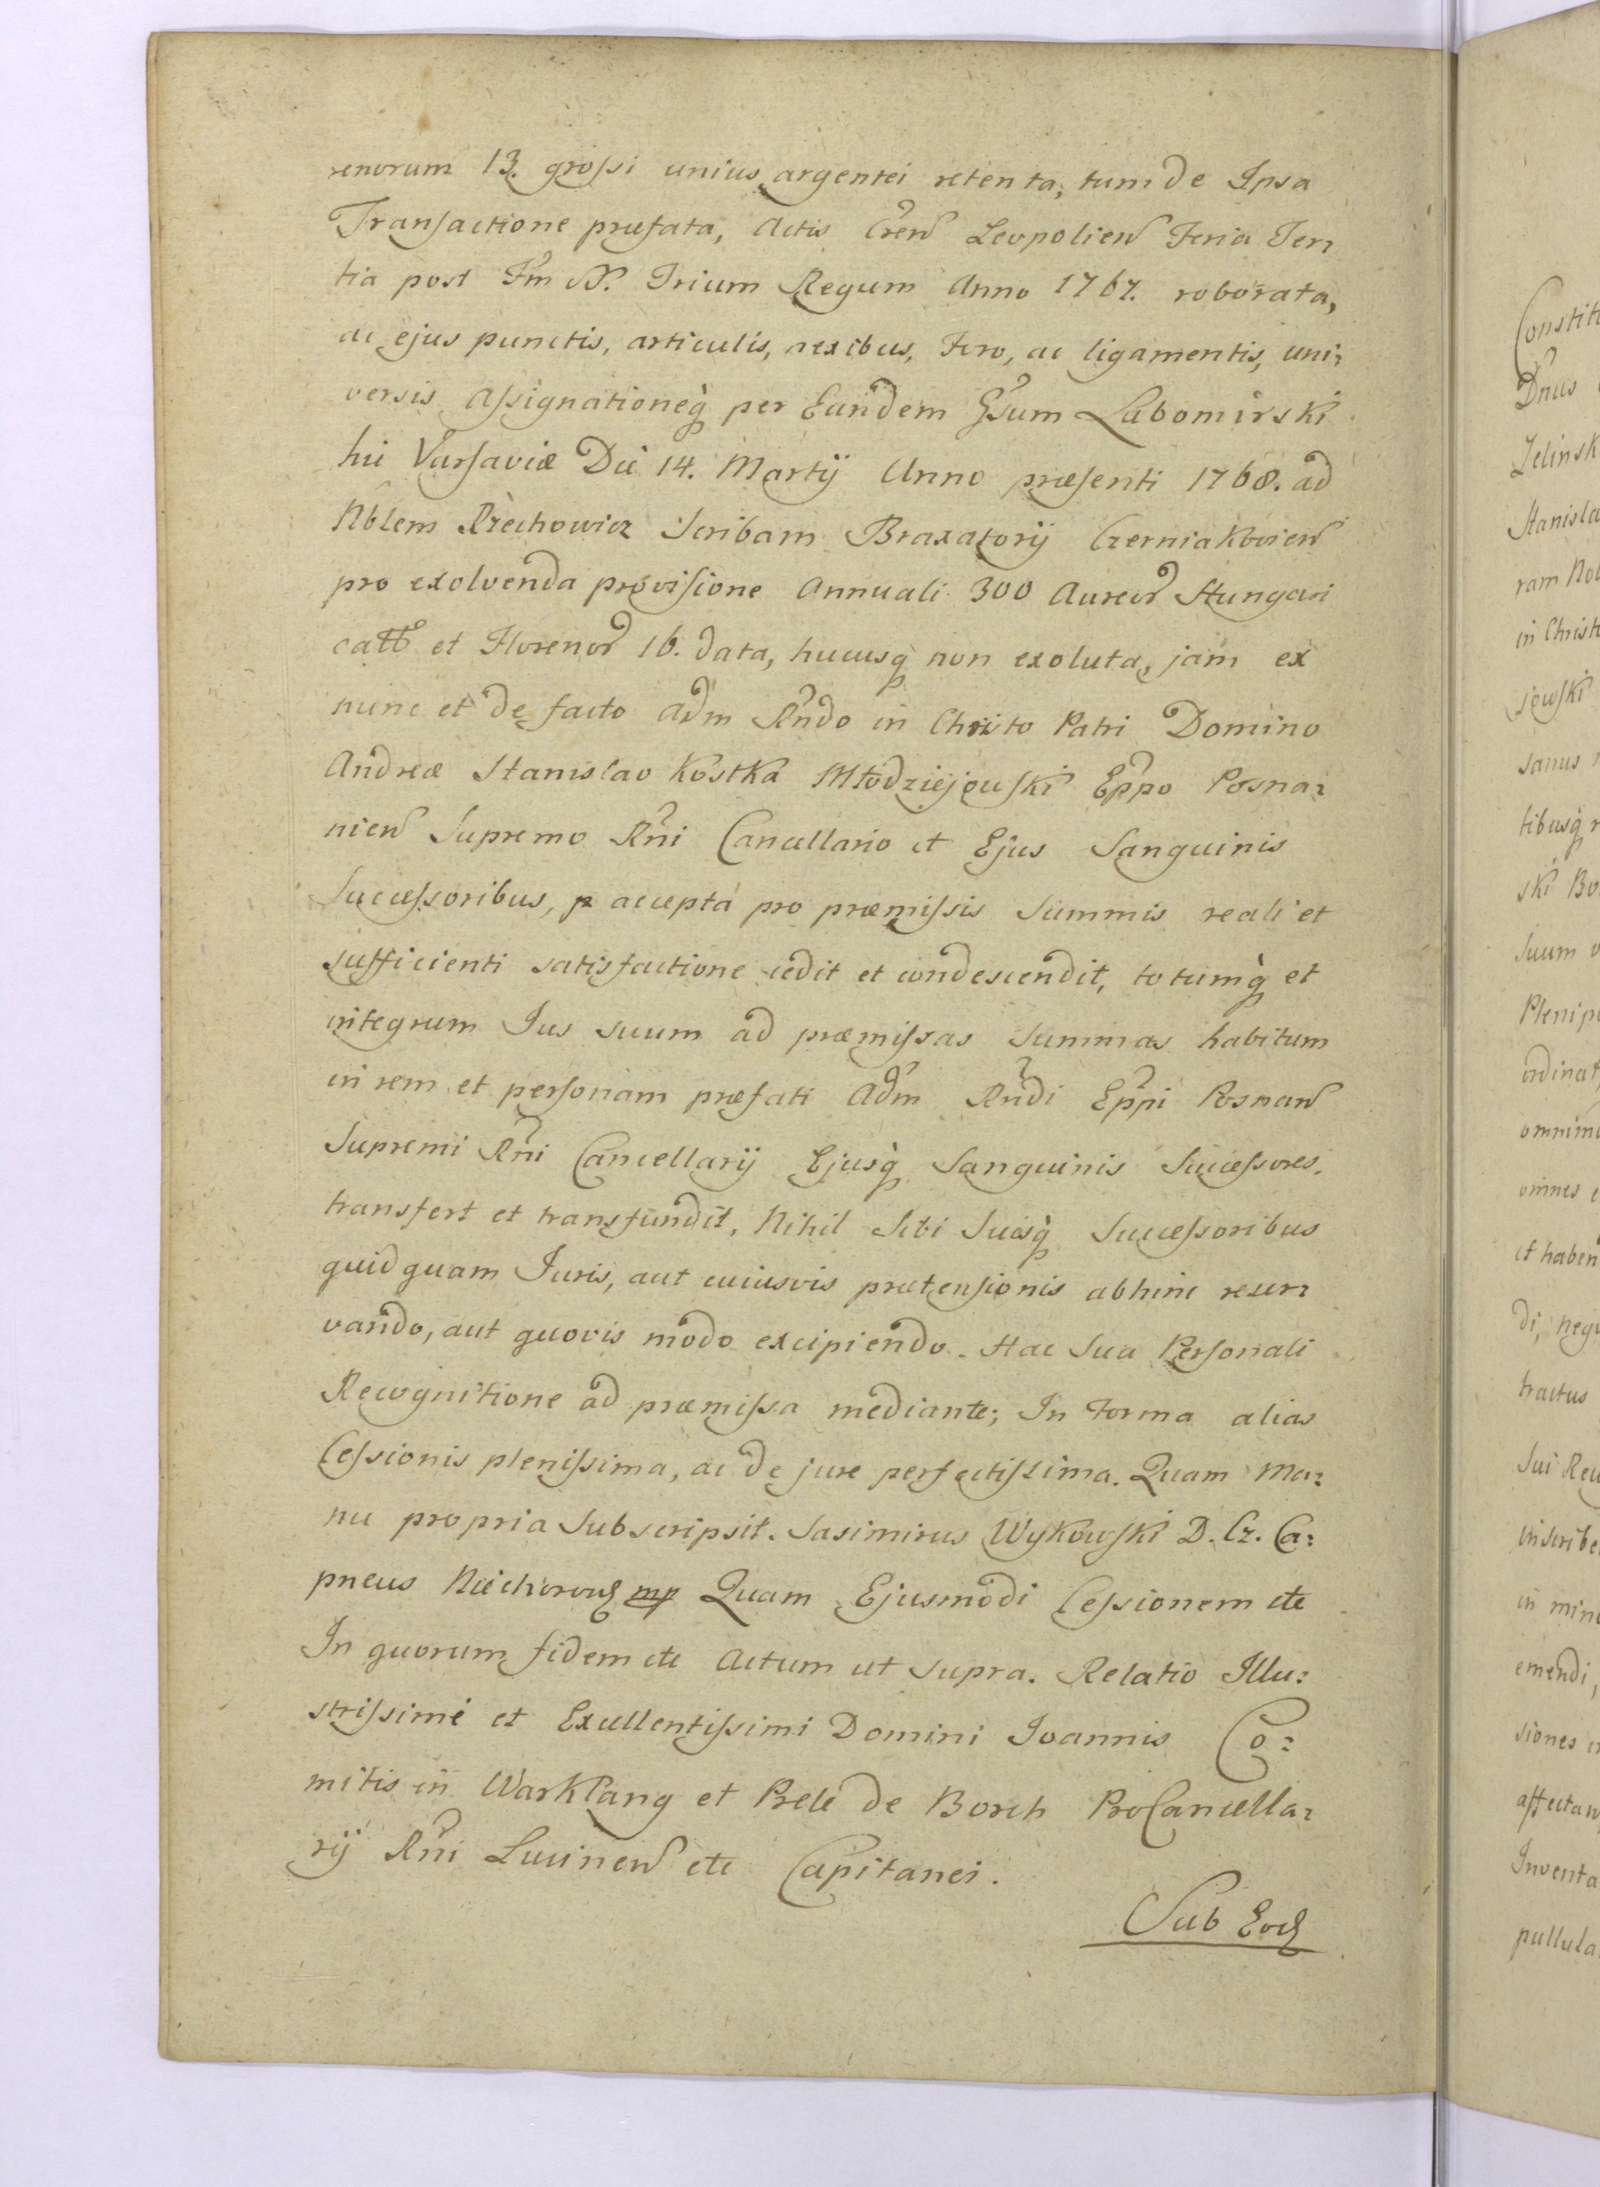 renorum 13. grossi unius argentei retenta, tum de Ipsa
Transactione præfata, Actis Cren̄ Leopolien̄ Feria Ter=
tia post Fm̄ SS. Trium Regum Anno 1767. roborata,
ac ejus punctis, articulis, nexibus, Fero, ac ligamentis, uni=
versis Assignationeq̀ per Eundem Gs̄um Lubomirski
hic Varsaviæ Die 14. Martij Anno præsenti 1768. ad
Nblem Rzechowicz Scribam Braxatorij Czerniakovien̄
pro exolvenda provisione Annuali 300 Aureor̄ Hungari
catt̄ et Florenor̄ 16. data, hucusq̀ non exoluta, jam ex
nunc et de facto Adm̄ Rn̄do in Christo Patri Domino
Andreæ Stanislao Kostka Młodziejowski Ep̄po Posna=
nien̄ Supremo Rn̄i Cancellario et Ejus Sanguinis
Successoribus, p accepta pro præmissis Summis reali et
sufficienti satisfactione cedit et condescendit, totumq̀ et
integrum Jus suum ad præmissas Summas habitum
in rem et personam præfati Adm̄ Rn̄di Ep̄pi Posnan̄
Supremi Rn̄i Cancellarij Ejusq̀ Sanguinis Successores.
transfert et transfundit, Nihil Sibi Suisq̀ Successoribus
quidquam Juris, aut cuiusvis prætensionis abhinc reser=
vando, aut quovis modo excipiendo. Hac Sua Personali
Recognitione ad præmissa mediante; In Forma alias
Cessionis plenissima, ac de jure perfectissima. Quam Ma=
nu propria Subscripsit. Sasimirus Wykowski D. Cz. Ca=
pneus mp Quam Ejusmodi Cessionem etc
In quorum fidem etc Actum ut supra. Relatio Illu=
strissimi et Excellentissimi Domini Joannis Co=
mitis in Warkland et Prele de Borch ProCancella=
rij Rn̄i Lucinen̄ etc Capitanei.
Sub Eod
Constit
Dn̄us
Zelinsk
Stanisla
ram Nob
in Christ
jewski
sanus
tibusq̀ r
ski Bo
suum v
Plenip
ordinat
omnim
omnes e
et haben
di, neg
tractus
Sui Rec
inscribe
in mino
emendi,
siones in
affectan
Inventa
pullula